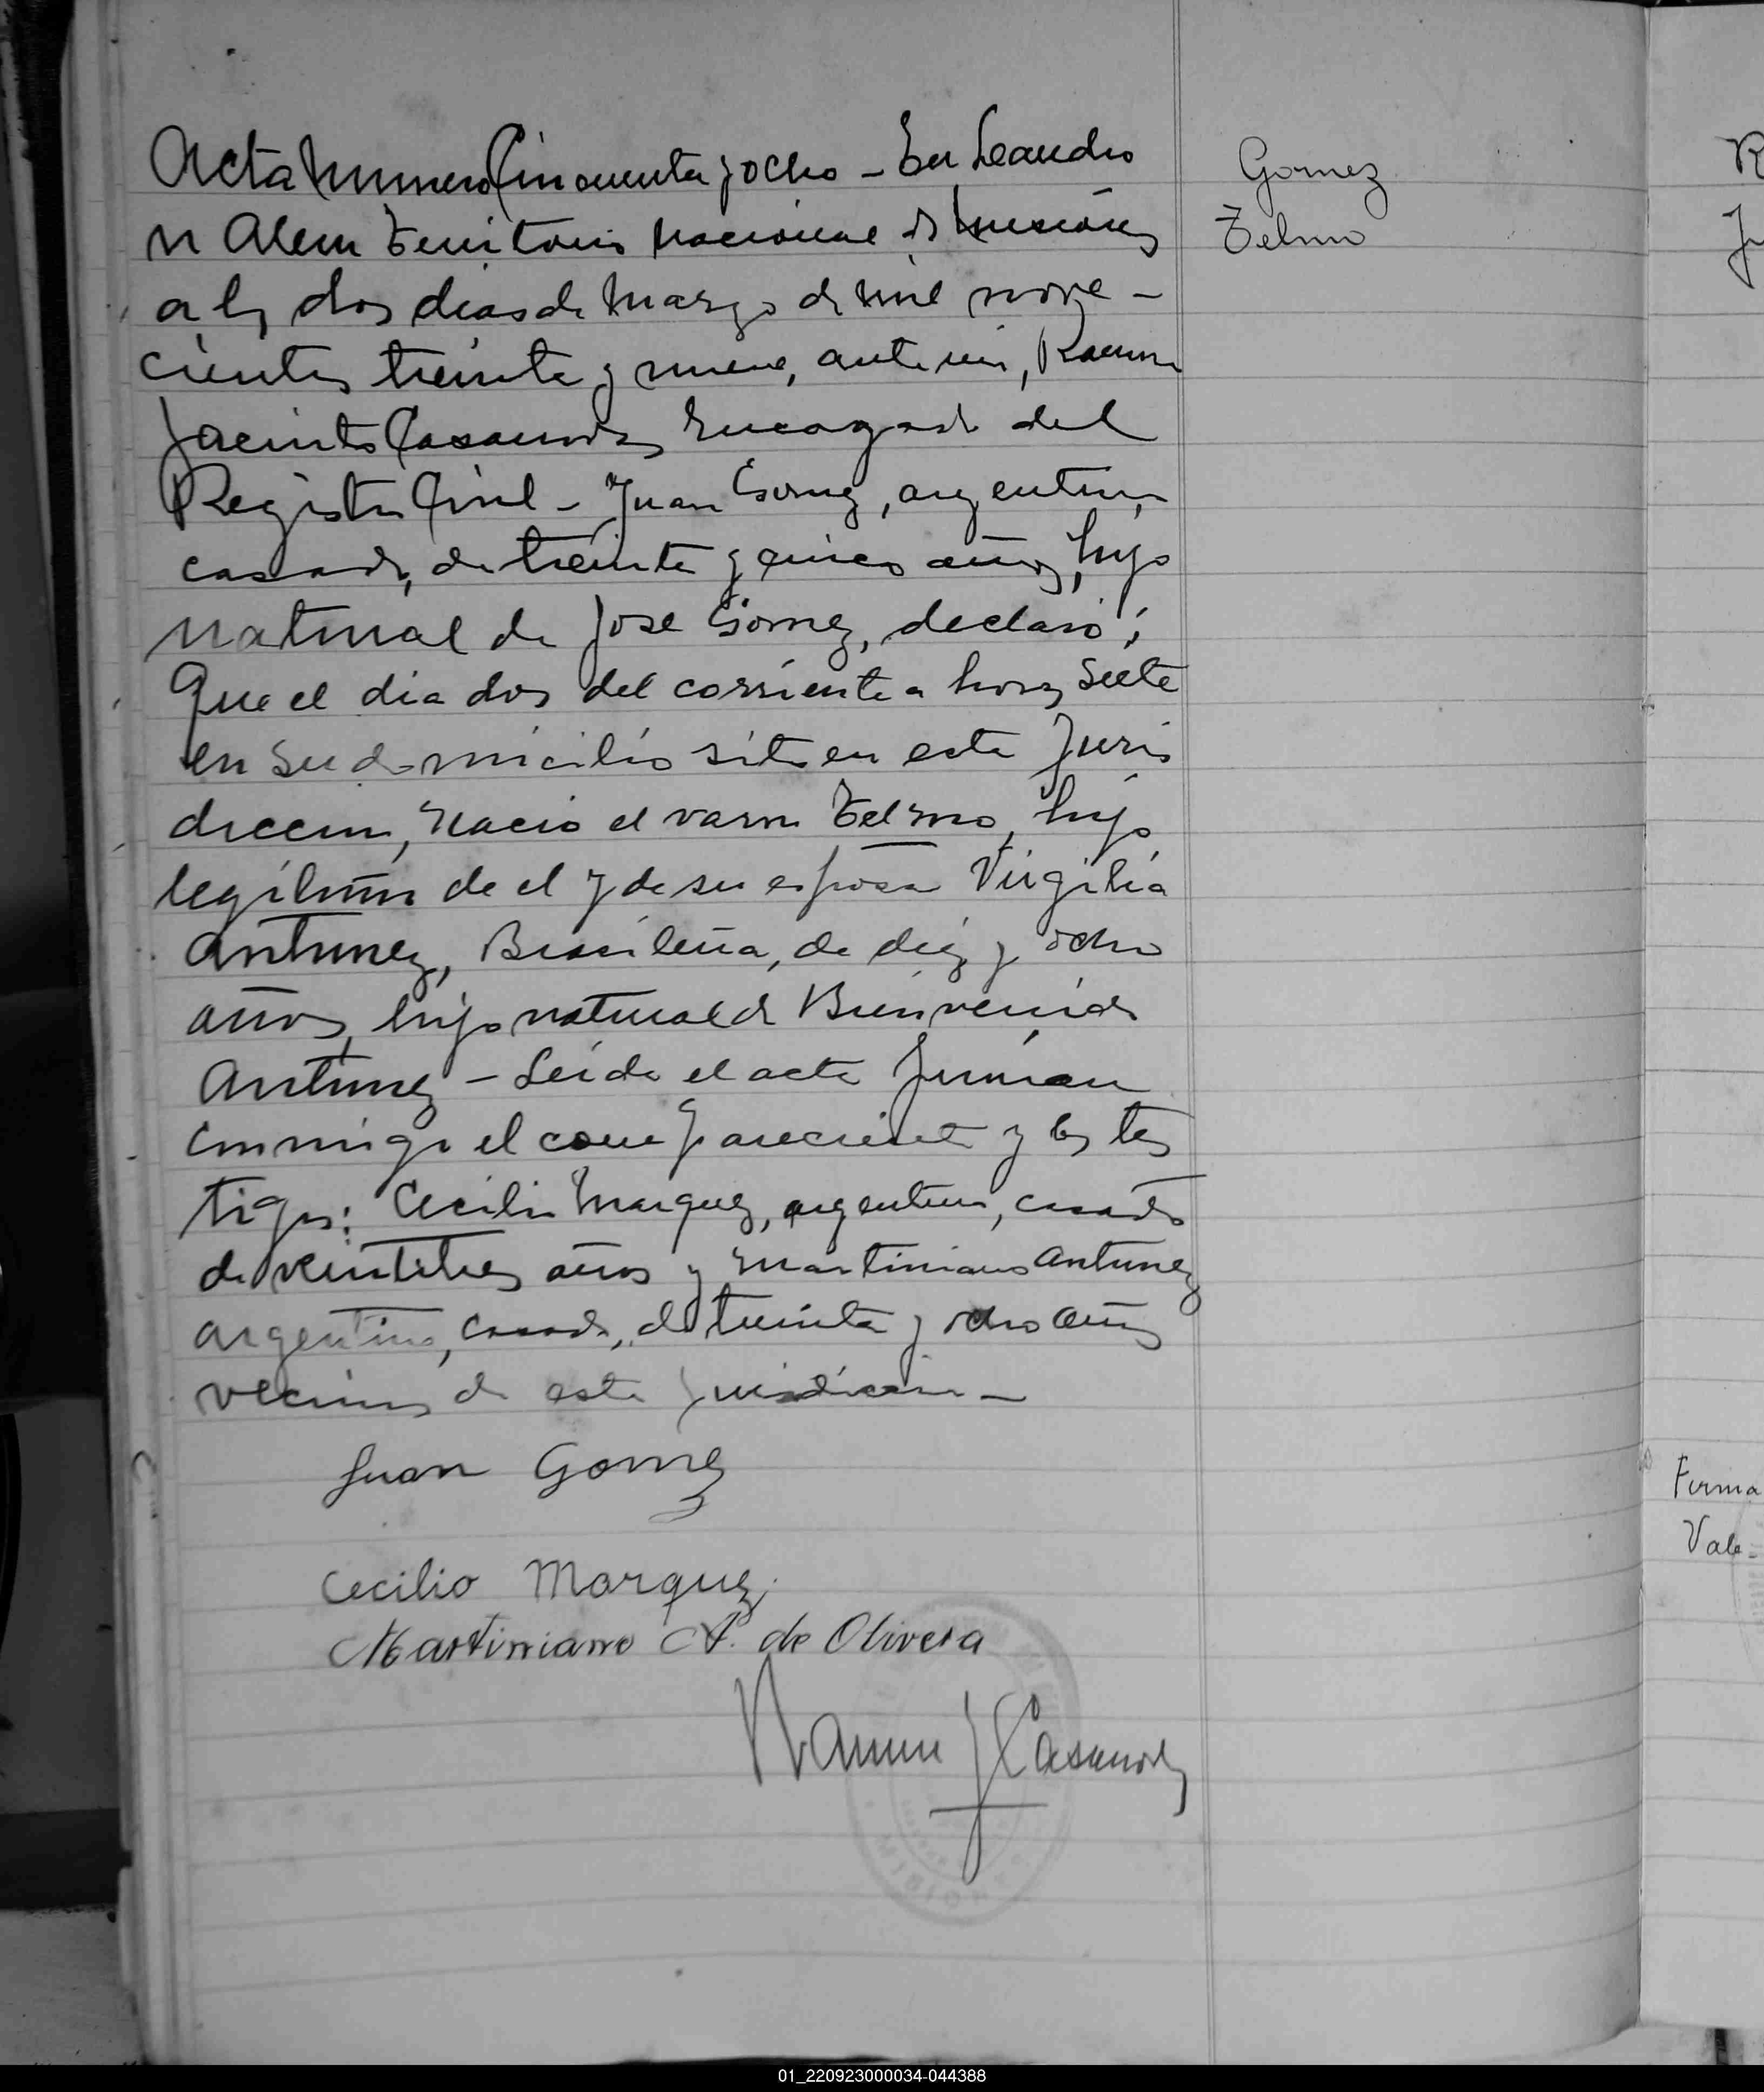 Acta Numero Cincuenta y ocho - En Leandro
N Alem Territorio Nacional de Misiones
a los dos dias de Marzo de mil nove-
cientos treinta y nueve, ante mi, Ramon
Jacinto Casanova, Encargado del
Registro Civil - Juan Gomez, argentino,
casado, de treinta y cinco años, hijo
natural de Jose Gomez, declaró:
Que el dia dos del corriente a horas siete
en su domicilio sito en esta juris
diccion, nacio el varon Telmo, hijo
legitimo de el y de su esposa Virgilia
Antunez, Brasileña, de diez y ocho
años, hija natural de Bienvenida
Antunez - Leida el acta firman
conmigo el compareciente y los tes
tigos: Cecilio Marquez, argentino, casado
de veintitres años y Martiniano Antunez
argentino, casado, de treinta y ocho años
vecinos de esta jurisdiccion -
Juan Gomez
Cecilio Marquez
Martiniano A. de Olivera
Ramon J Casanova
Gomez
Telmo
R
J
Firma
Vale-
MISIONES
01_220923000034-044388